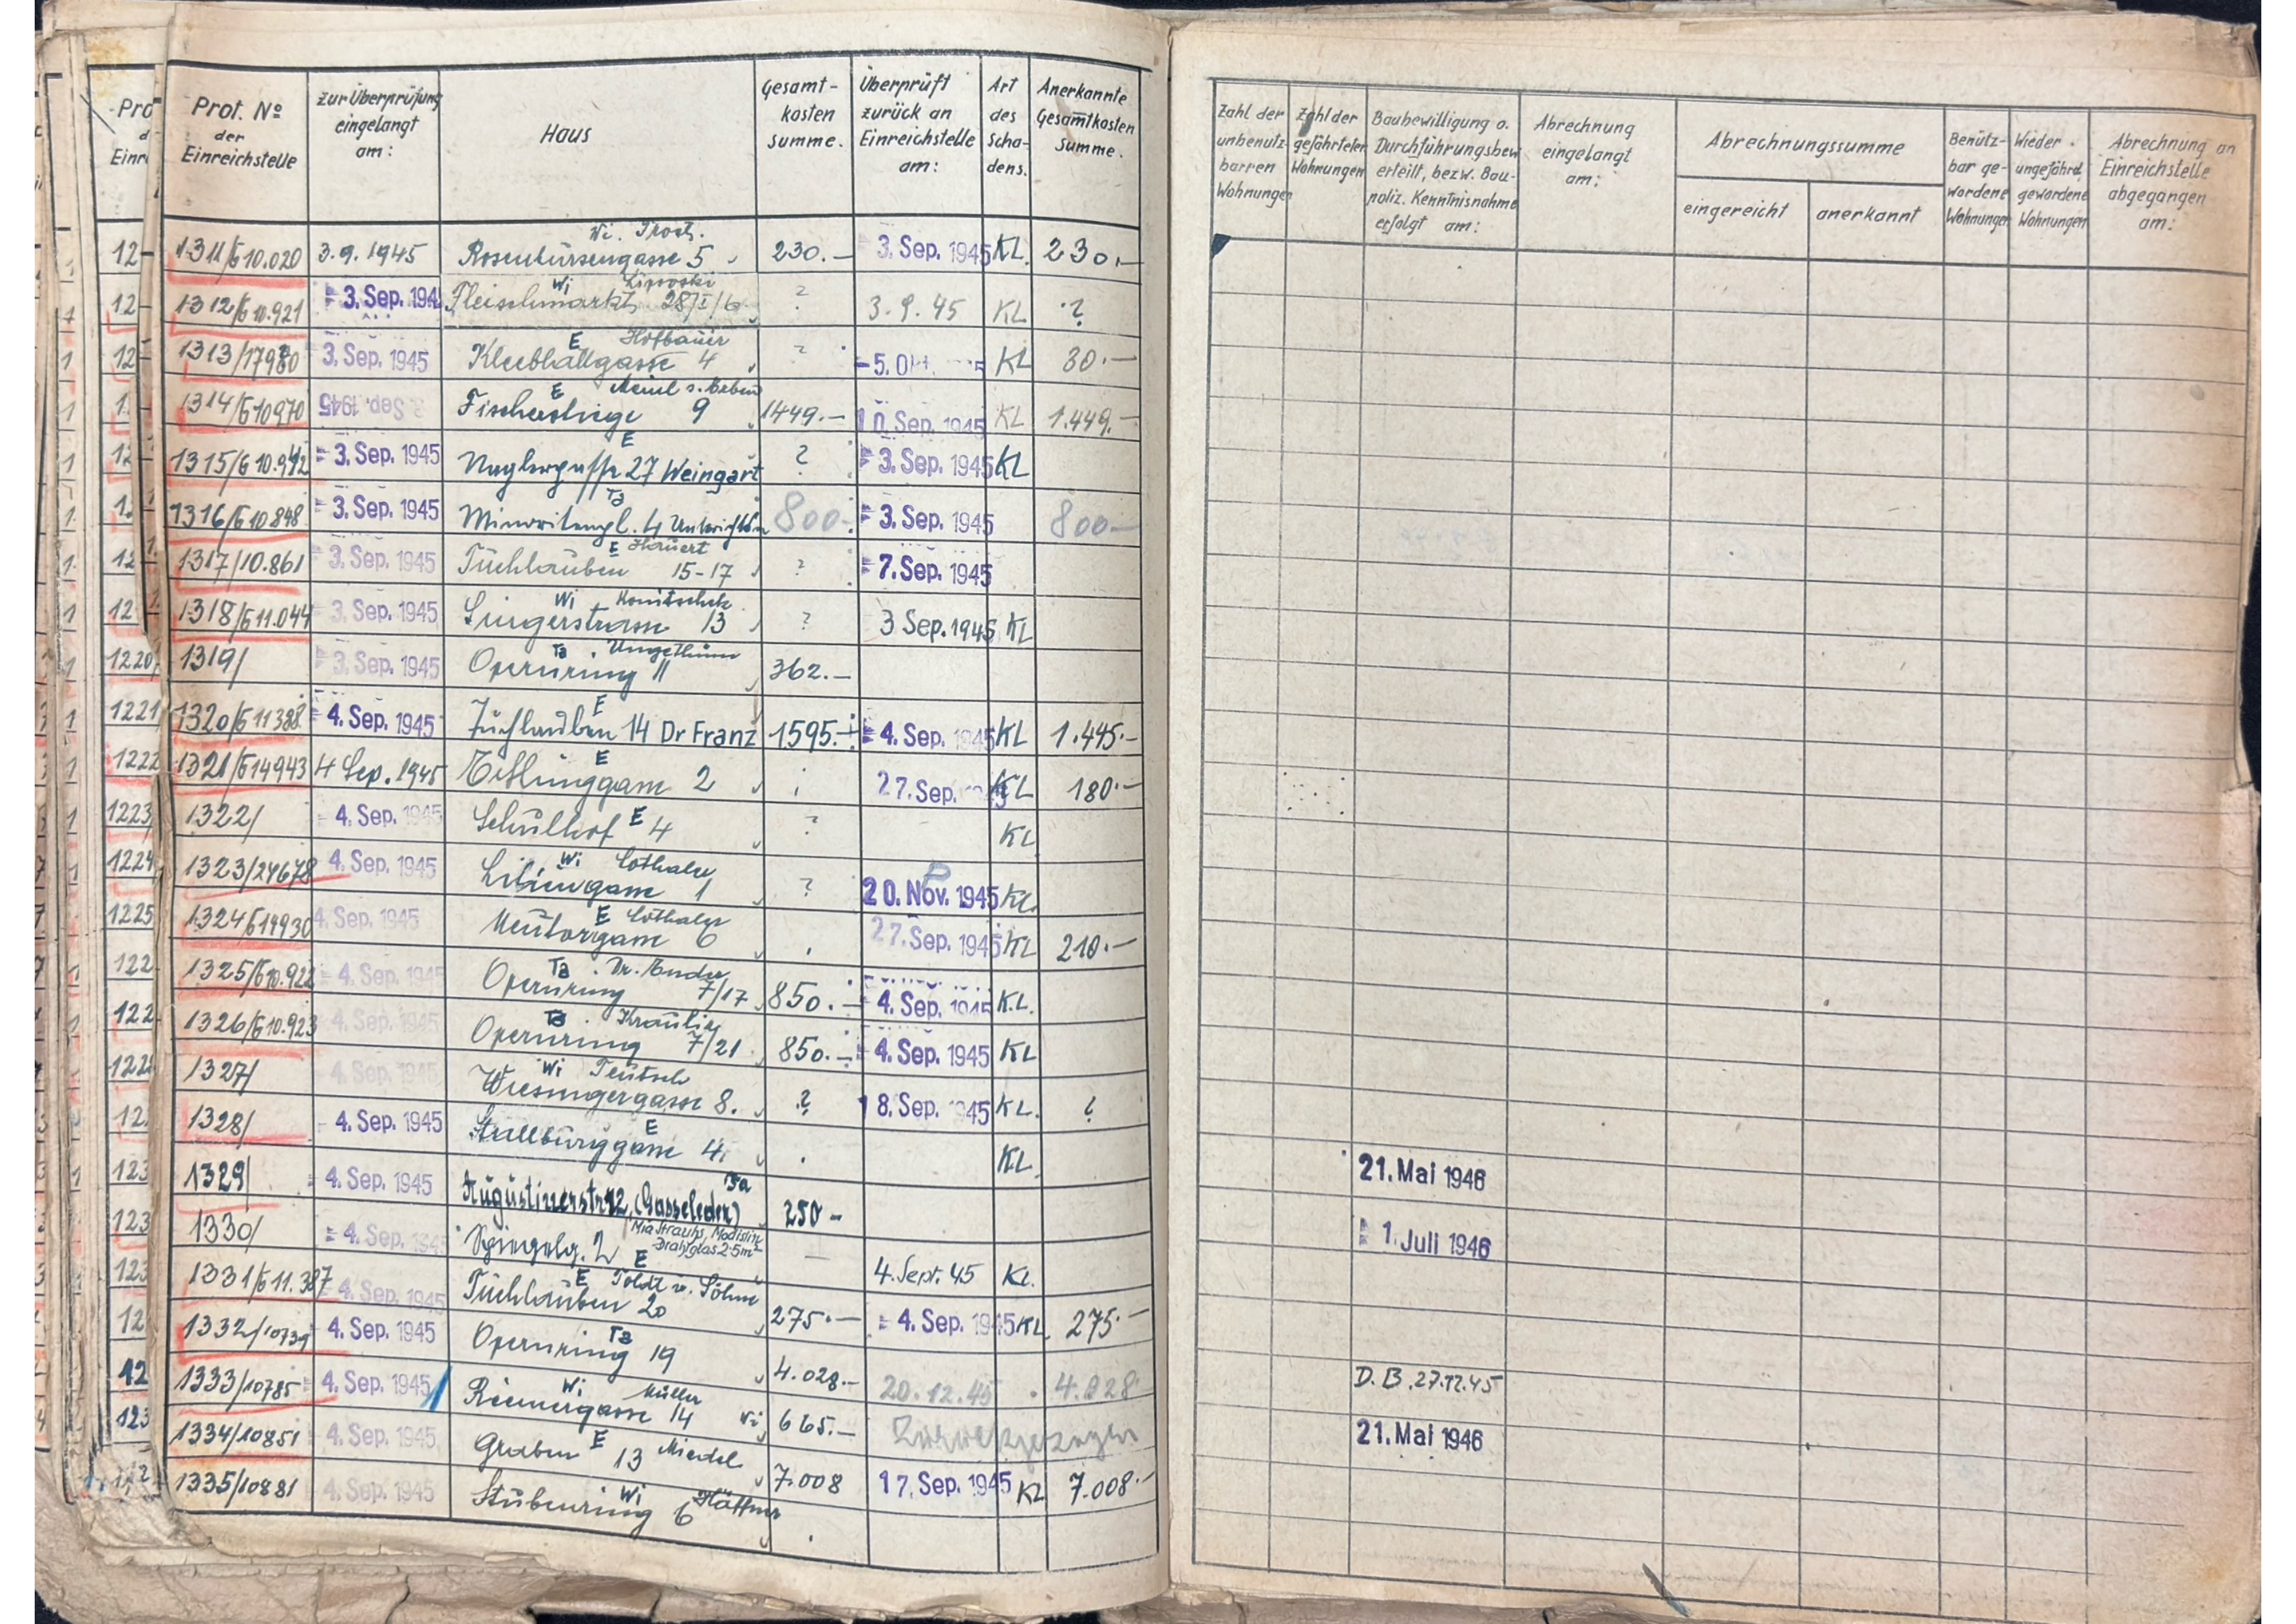 Prot. No der Einreichstelle | zur Überprüfung eingelangt am: | Haus | Gesamt-kosten summe. | Überprüft zurück an Einreichstelle am: | Art des Scha-dens. | Anerkannte Gesamtkosten Summe.
Zahl der unbenutz-barren Wohnungen | Zahl der gefährteten Wohnungen | Baubewilligung o. Durchführungsbew. erteilt, bezw. Bau-poliz. Kenntnisnahme erfolgt am: | Abrechnung eingelangt am: | Abrechnungssumme | eingereicht | anerkannt | Benütz-bar ge-wordene Wohnungen | Wieder ungefährd. gewordene Wohnungen | Abrechnung an Einreichstelle abgegangen am:
1311/G10.020 3.9.1945 Wi. Rosenbursengasse 5 230.— 3. Sep. 1945 KL. 230.—
1312/G10.921 3. Sep. 194 Wi Fleischmarkt 28 ? 3.9.45 KL ?
1313/ 3. Sep. 1945 E Hofbauer Kleeblattgasse 4 ? 5. Okt. KL 30.—
1314/G10970 3. Sep. 1945 E Fischerstiege 9 1449.— 10. Sep. 1945 KL 1.449.—
1315/G10.942 3. Sep. 1945 E Naglergasse 27 Weingart ? 3. Sep. 1945 KL
1316/G10.848 3. Sep. 1945 Ta Minoritenpl. 4 800.— 3. Sep. 1945 800—
1317/10.861 3. Sep. 1945 E Tuchlauben 15-17 ? 7. Sep. 1945
1318/G11.044 3. Sep. 1945 Wi Singerstrasse 13 ? 3 Sep. 1945 KL
1220 1319/ 3. Sep. 1945 Ta Ungethüm Opernring 11 362.—
1221 1320/G11388 4. Sep. 1945 E Tuchlauben 14 Dr Franz 1595.— 4. Sep. 1945 KL 1.445.—
1222 1321/G14943 4 Sep. 1945 E Eßlinggasse 2 27. Sep. KL 180.—
1223 1322/ 4. Sep. 1945 Schulhof E 4 ? KL
1224 1323/24678 4. Sep. 1945 Wi Lothaler Liliengasse 1 ? 20. Nov. 1945 KL
1225 1324/G14930 4. Sep. 1945 E Lothaler Neutorgasse 6 27. Sep. 1945 KL 210.—
122 1325/G10.922 4. Sep. 1945 Ta Dr. Opernring 7/17 850.— 4. Sep. 1945 K.L.
122 1326/G10.923 4. Sep. 1945 Ta Opernring 7/21 850.— 4. Sep. 1945 KL
1327/ 4. Sep. 1945 Wi Teutsch Wiesingergasse 8. ? 18. Sep. 1945 KL. ?
1328/ 4. Sep. 1945 E Stallburggasse 4 KL.
1329/ 4. Sep. 1945 Ta Augustinerstr 12 (Gasseleder) 250— 21. Mai 1946
1330/ 4. Sep. 194 Spiegelg. 2 E Mia Strauhs, Modistin Drahtglas 2·5m² — 4. Sept. 45 KL. 1. Juli 1946
1331/G11.387 4. Sep. 1945 E Toldt u. Söhne Tuchlauben 20 275.— 4. Sep. 1945 KL 275.—
1332/10739 4. Sep. 1945 Ta Opernring 19 4.028.— 20.12.45 4.028 D.B. 27.12.45
1333/10785 4. Sep. 1945 Wi Müller Riemergasse 14 Wi 665.— Zurückgezogen 21. Mai 1946
1334/10851 4. Sep. 1945 Graben E 13 7.008 17. Sep. 1945 KL 7.008.—
1335/10881 4. Sep. 1945 Wi Stubenring 6